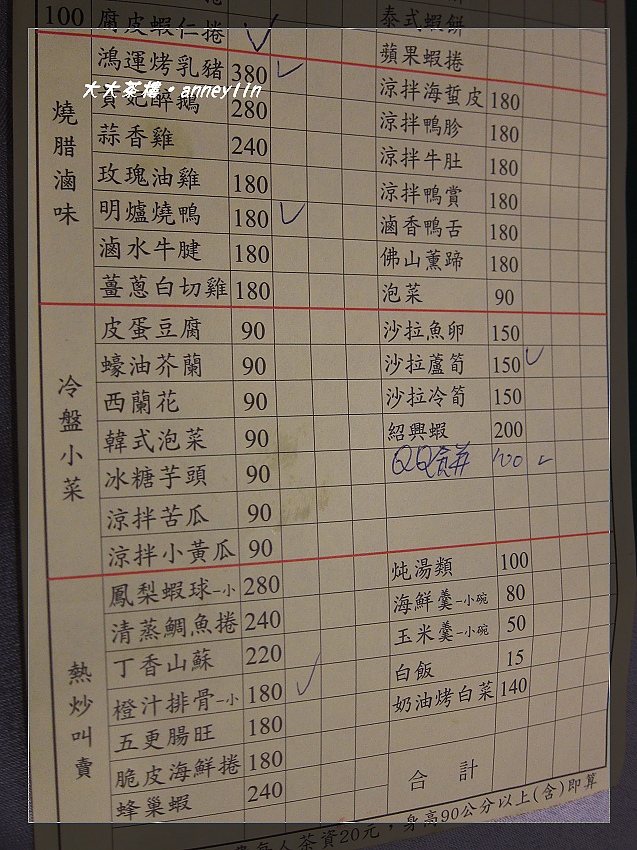 100 腐皮蝦仁捲
鴻運烤乳豬 380
大大茶樓・anneylin
貴妃醉鵝 280
蒜香雞 240
玫瑰油雞 180
明爐燒鴨 180
滷水牛腱 180
薑蔥白切雞 180
燒腊滷味
皮蛋豆腐 90
蠔油芥蘭 90
西蘭花 90
韓式泡菜 90
冰糖芋頭 90
涼拌苦瓜 90
涼拌小黃瓜 90
冷盤小菜
鳳梨蝦球-小 280
清蒸鯛魚捲 240
丁香山蘇 220
橙汁排骨-小 180
五更腸旺 180
脆皮海鮮捲 180
蜂巢蝦 240
熱炒叫賣
泰式蝦餅
蘋果蝦捲
涼拌海蜇皮 180
涼拌鴨胗 180
涼拌牛肚 180
涼拌鴨賞 180
滷香鴨舌 180
佛山薰蹄 180
泡菜 90
沙拉魚卵 150
沙拉蘆筍 150
沙拉冷筍 150
紹興蝦 200
QQ餅 100
炖湯類 100
海鮮羹-小碗 80
玉米羹-小碗 50
白飯 15
奶油烤白菜 140
合計
每人茶資20元，身高90公分以上(含)即算